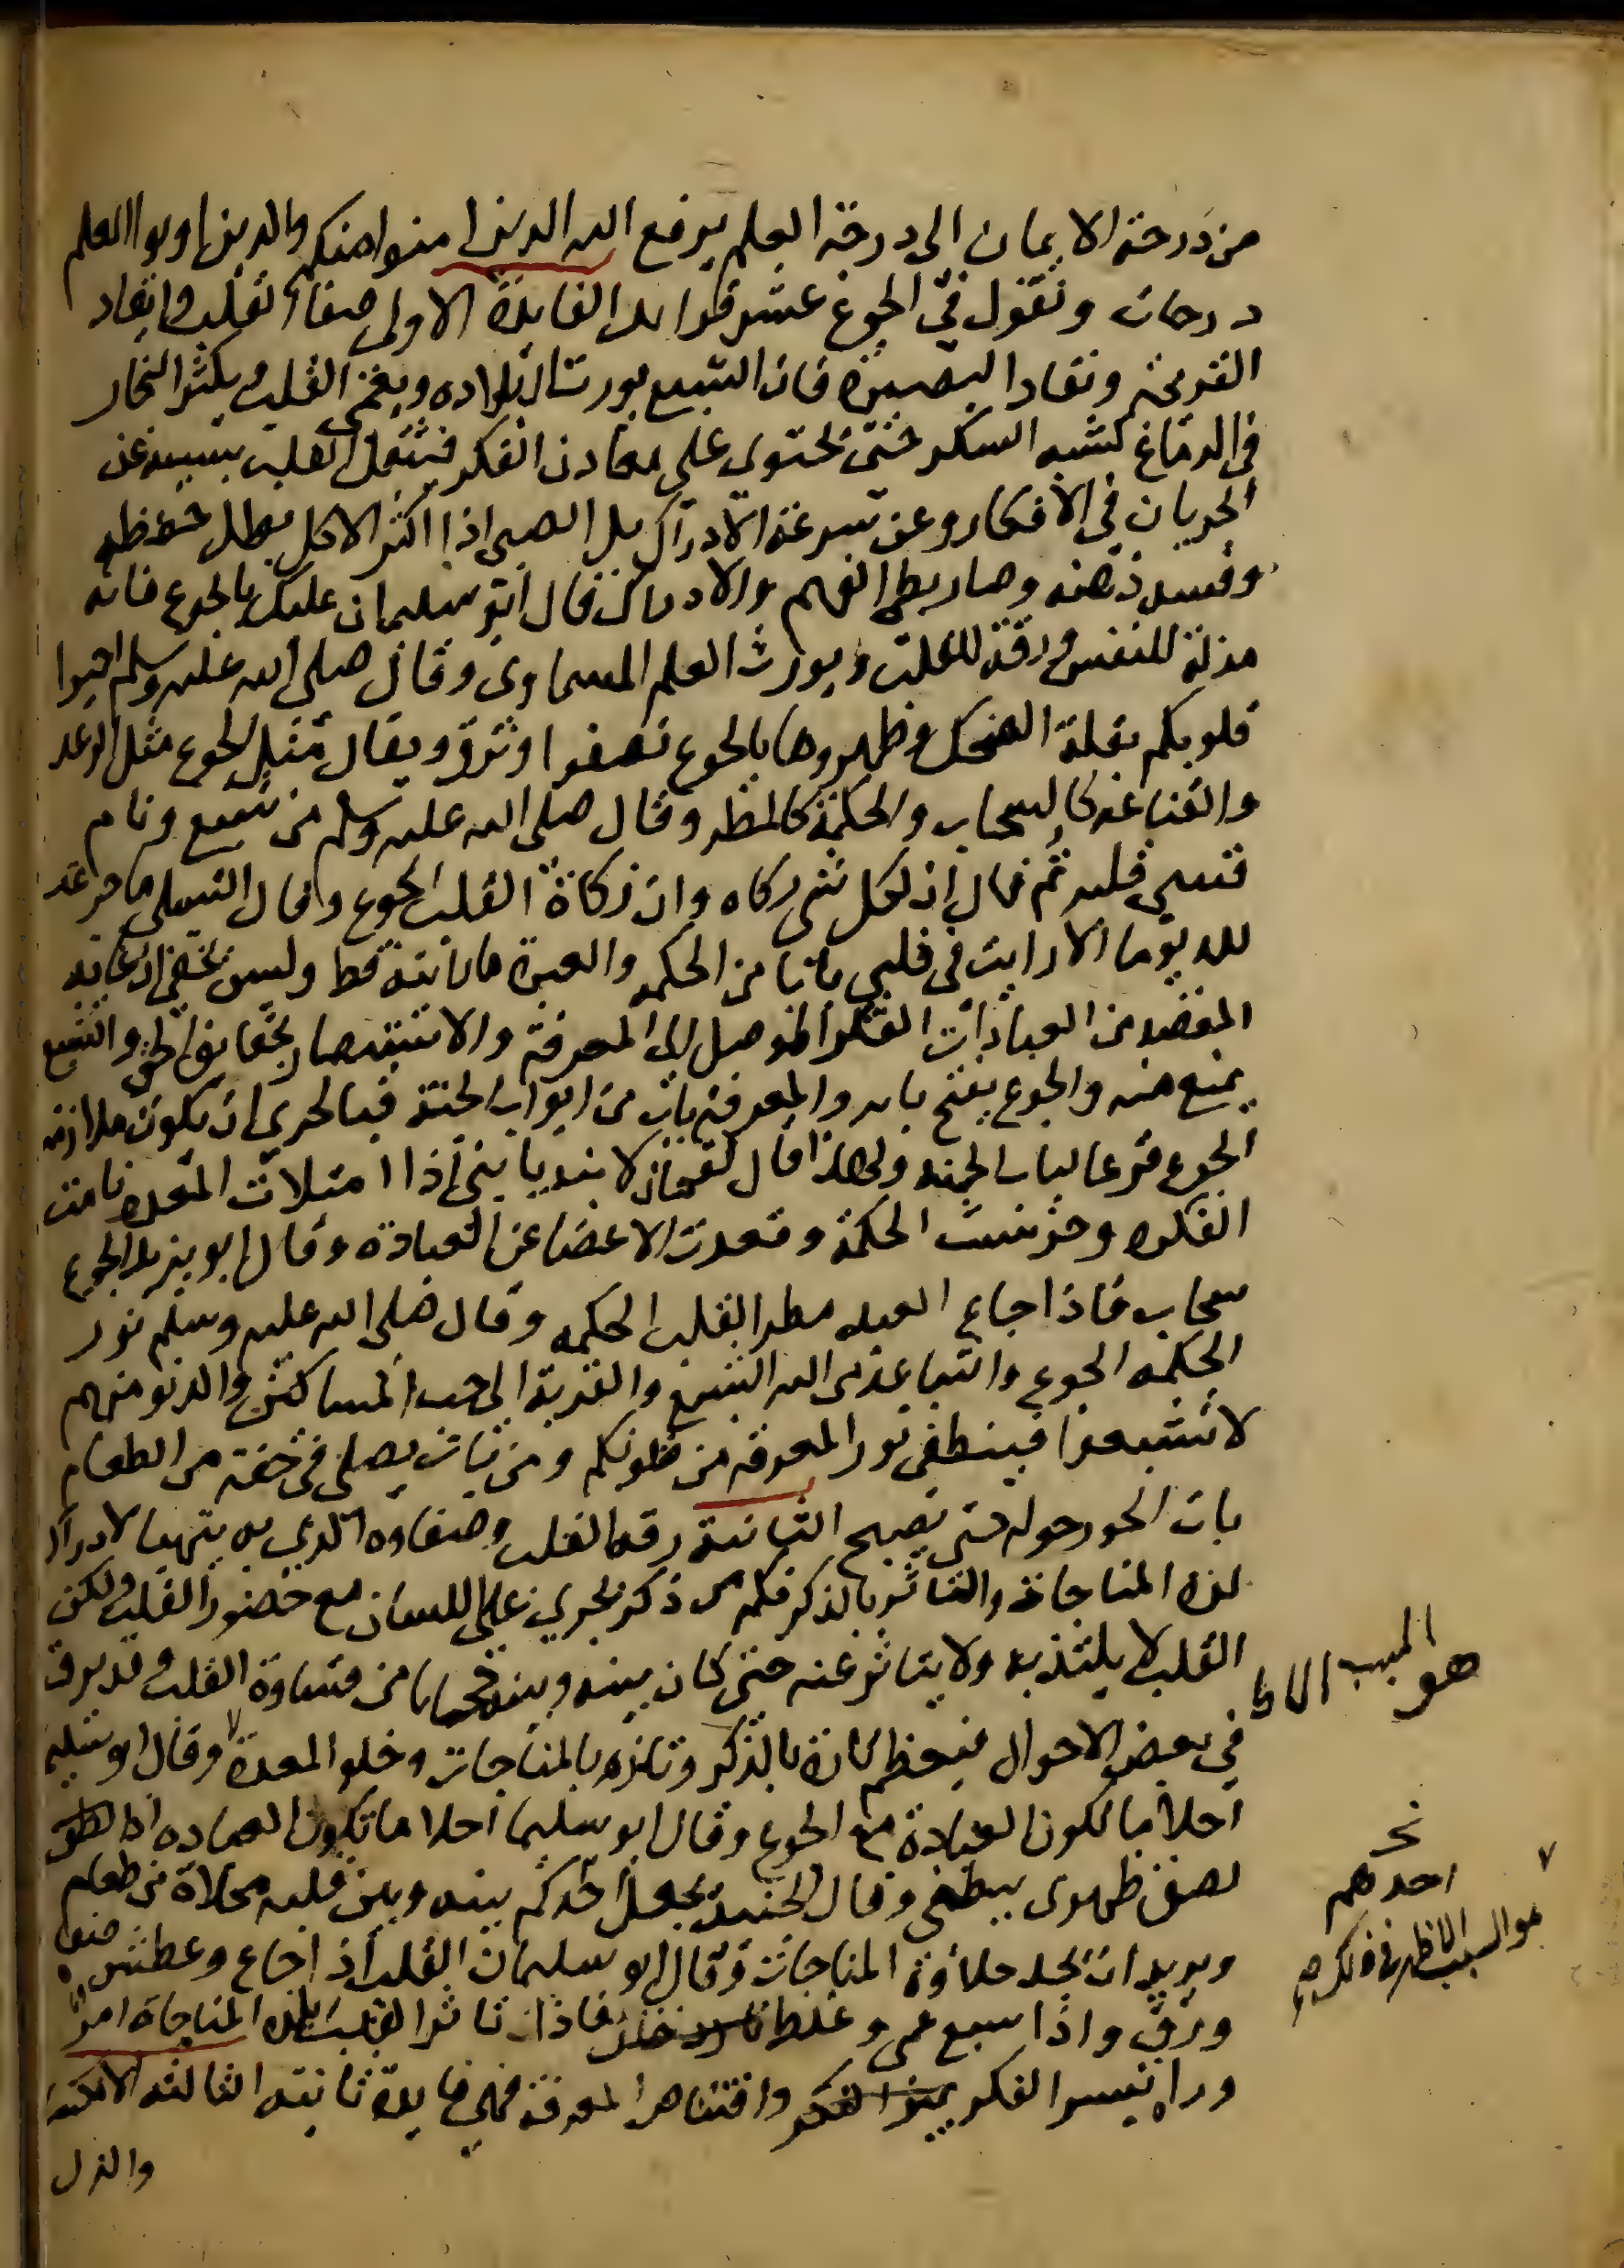 من درجة الايمان الى درجة العلم يرفع الله الدين امنوا منكم والدين اوتوا العلم
درجات ونقول في الجوع عشر فوايد الفايدة الاولى صفاء القلب وايقاد
القريحه ونفاد البصيرة فان الشبع يورث البلاده ويعمى القلب ويكثر البخار
في الدماغ كشبه السكر حتى يحتوى على معادن الفكر فيثقل القلب بسببه عن
الجريان في الافكار وعن سرعة الادراك بل الصبى اذا اكثر الاكل بطل حفظه
وفسد ذهنه وصار بطى الفهم والادراك قال ابو سليمان عليك بالجوع فانه
مذلة للنفس ورقة للقلب ويورث العلم السماوى وقال صلى الله عليه وسلم احيوا
قلوبكم بقلة الضحك وطهروها بالجوع تصفوا وترق ويقال مثل الجوع مثل الرعد
والقناعة كالسحاب والحكمة كالمطر وقال صلى الله عليه وسلم من شبع ونام
قسى قلبه ثم قال ان لكل شى زكاه وان زكاة القلب الجوع وقال الشبلى ما جوعت
لله يوما الا رايت في قلبي بابا من الحكمه والعبرة ما رايته قط وليس يخفى ان غاية
المقصد من العبادات الفكر الموصل الى المعرفة والاستبصار بحقايق الحق والشبع
يمنع منه والجوع يفتح بابه والمعرفة باب من ابواب الجنة فبالحرى ان يكون ملازمة
الجوع قرعا لباب الجنه ولهذا قال لقمان لابنه يا بني اذا امتلات المعده نامت
الفكره وخرست الحكمة وقعدت الاعضا عن العبادة وقال ابو يزيد الجوع
سحاب فاذا جاع العبد مطر القلب الحكمه وقال صلى الله عليه وسلم نور
الحكمه الجوع والتباعد من الله الشبع والقربة الى حب المساكين والدنو منهم
لا تشبعوا فينطفى نور المعرفه من قلوبكم ومن بات يصلى في خفة من الطعام
بات الحور حوله حتى يصبح الثانية رقة القلب وصفاوه الذي به يتهيا لادراك
لذة المناجاة والتاثر بالذكر فكم من ذكر يجري على اللسان مع حضور القلب ولكن
القلب لا يلتذ به ولا يتاثر عنه حتى كان بينه وبينه حجابا من قساوة القلب وقد يرق
في بعض الاحوال فيعظم تاثره بالذكر وتلذذه بالمناجات وخلو المعدة وقال ابو سليما
احلا ما تكون العبادة مع الجوع وقال ابو سليما احلا ما تكون العباده اذا لصق
لصق ظهرى ببطنى وقال الجنيد يجعل احدكم بينه وبين قلبه مخلاة من طعام
ويريد ان يجد حلاوة المناجات وقال ابو سليمان القلب اذ اجاع وعطش صفا
ورق واذا سبع عمى وغلط فاذا تاثر القلب بلذة المناجاة امر
ورا تيسر الفكر واقتناص المعرفة فهي فايدة ثانية الثالثه الانكسا
والذل
هو السبب الاظ
نحـ
احدهم
هو السبب الاظهر في ذلك صح